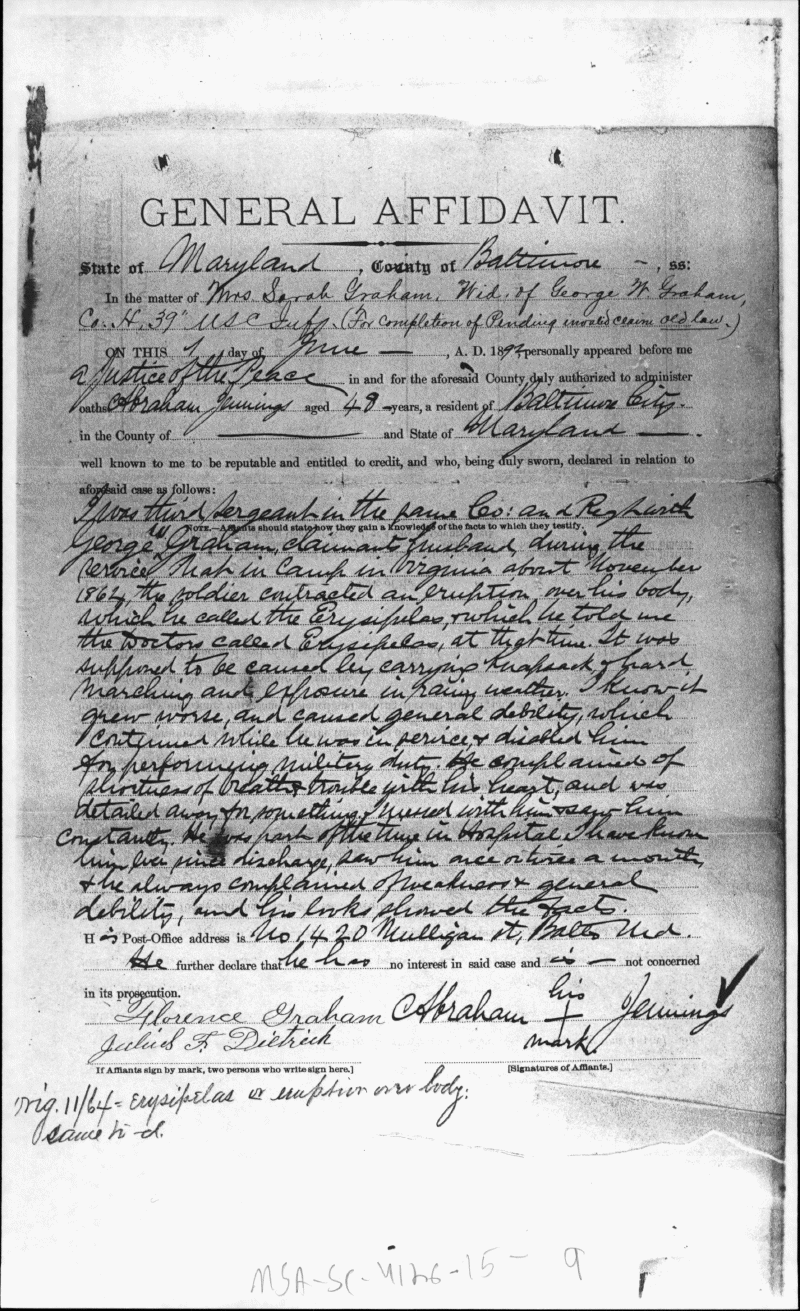 GENERAL AFFIDAVIT.
State of Maryland, County of Baltimore —, ss:
In the matter of Mrs. Sarah Graham, Wid. of George W. Graham,
Co. H. 39" U S C Infy. (For completion of Pending invalid claim old law.)
ON THIS 1 day of June —, A. D. 1892 personally appeared before me
a Justice of the Peace in and for the aforesaid County duly authorized to administer
oaths Abraham Jennings aged 48 – years, a resident of Baltimore City.
in the County of — and State of Maryland —.
well known to me to be reputable and entitled to credit, and who, being duly sworn, declared in relation to
aforesaid case as follows:
I was third Sergeant in the same Co: and Reg with
NOTE.—Affiants should state how they gain a knowledge of the facts to which they testify.
George W Graham, claimants husband, during the
service, that in Camp in Virginia about November
1864, the soldier contracted an eruption over his body,
which he called the Erysipelas, & which he told me
the Doctors called Erysipelas, at that time. It was
supposed to be caused by carrying Knapsack & hard
marching and exposure in rainy weather. I know it
grew worse, and caused general debility, which
continued while he was in service, & disabled him
for performing military duty. He complained of
shortness of breath & trouble with his heart, and was
detailed away for something. I messed with him & saw him
constantly. He was part of the time in Hospital. I have know
him ever since discharge, saw him once or twice a month,
& he always complained of weakness & general
debility, and his looks showed the facts.
His Post-Office address is No 1420 Mulligan st, Balto Md.
He further declare that he has no interest in said case and is — not concerned
in its prosecution.
Florence Graham Abraham his Jennings
Julius F. Dietrich mark.
If Affiants sign by mark, two persons who write sign here.] [Signatures of Affiants.]
Orig. 11/64 = Erysipelas or eruption over body.
same to d.
MSA-SC-4126-15-9